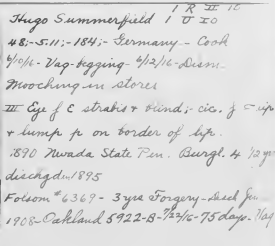 1 R III 12
Hugo Summerfield 1 U IO
48;-5.11;-184;-Germany-Cook
6/10/16-Vag-begging-6/12/16-Dism.
Mooching in stores
III Eye f E strabis & blind;-cic. f lip
& lump on border of lip.
1890 Nevada State Pen. Burgl. 4 1/2 yrs
dischgd. 1895
Folsom #6369-3 yrs Forgery-Disch
1908-Oakland 5922-B-7/22/16-75 days-Vag